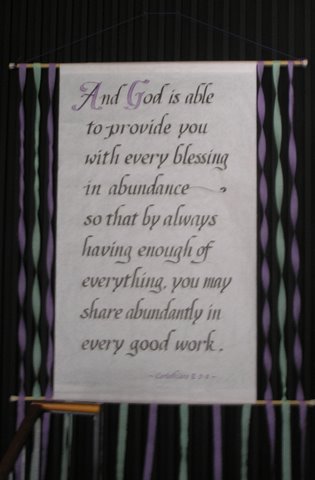 And God is able
to provide you
with every blessing
in abundance
so that by always
having enough of
everything, you may
share abundantly in
every good work.
~ Corinthians II 9:8 ~